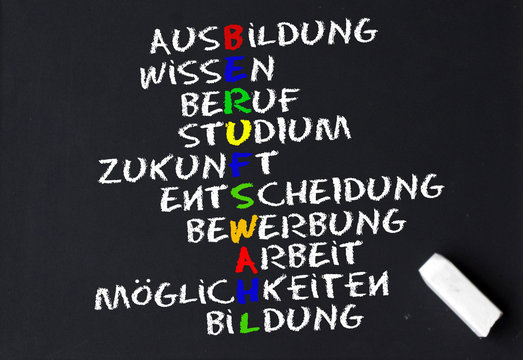 AUSBiLDUNG
WiSSEN
BERUF
STUDiUM
ZUKUNFT
ENTSCHEiDUNG
BEWERBUNG
ARBEiT
MÖGLiCHKEiTEN
BiLDUNG